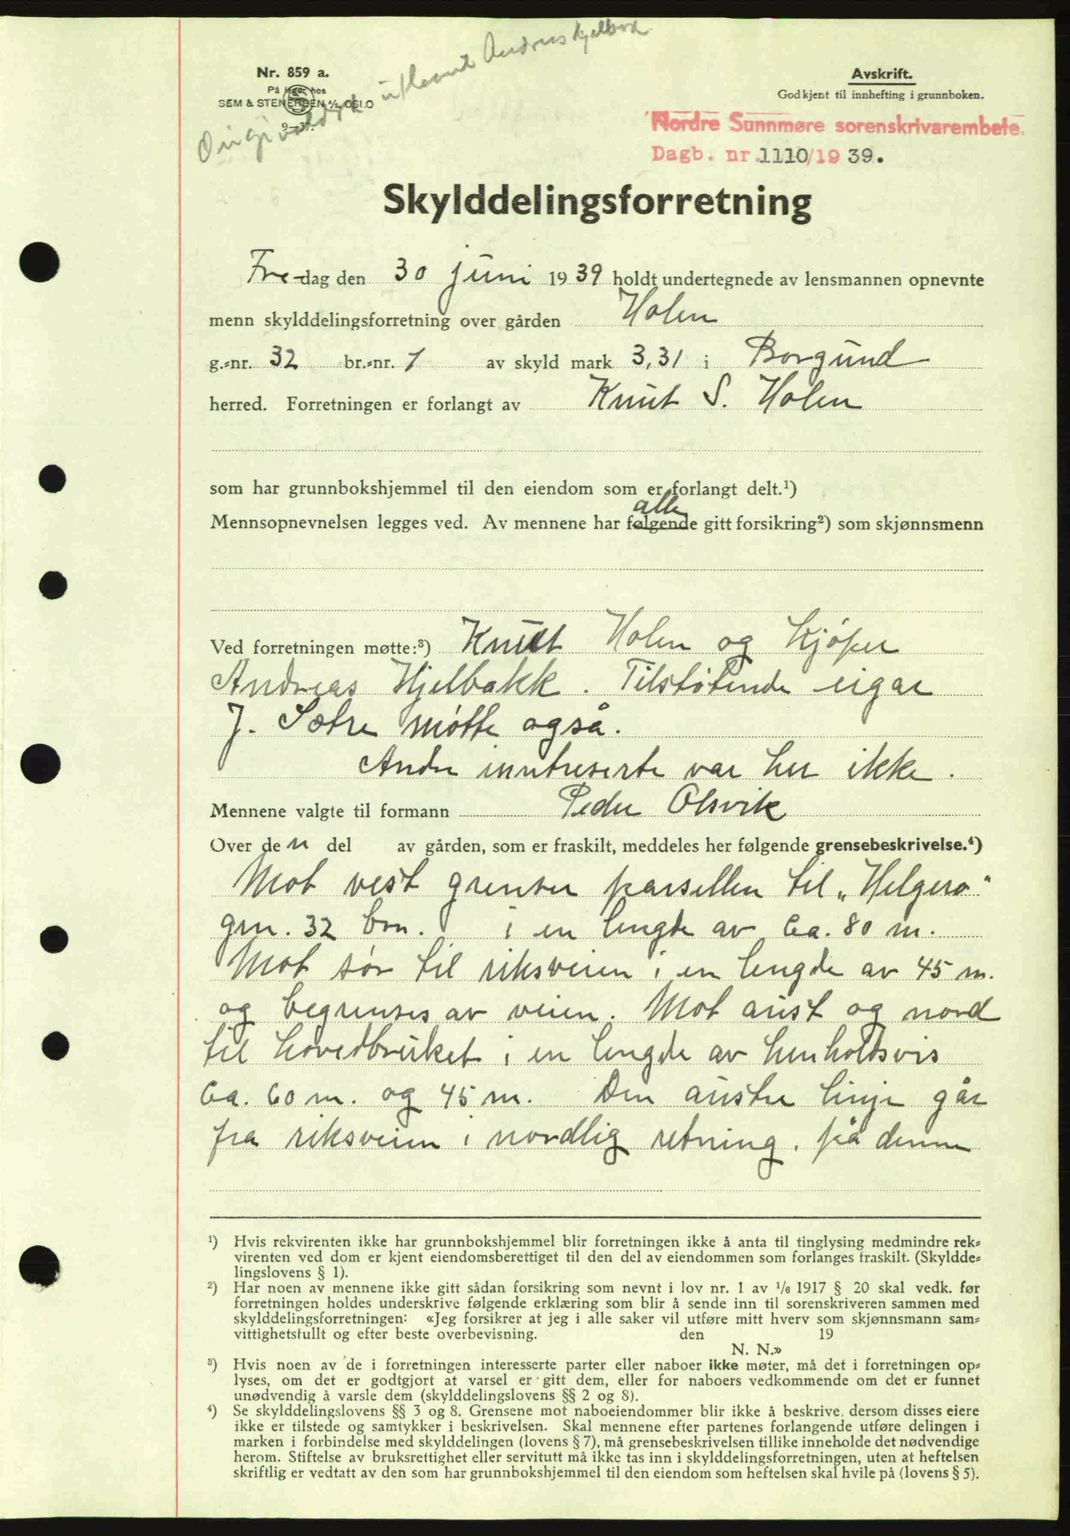 Nr. 859 a.
På lager hos
SEM & STENERSEN A/S OSLO
9—37.
utlevert Andreas Hjelbakk
Avskrift.
Godkjent til innhefting i grunnboken.
Nordre Sunnmøre sorenskrivarembete.
Dagb. nr. 1110/19 39.
Skylddelingsforretning
Fre-dag den 30 juni 1939 holdt undertegnede av lensmannen opnevnte
menn skylddelingsforretning over gården Holen
g.-nr. 32 br.-nr. 1 av skyld mark 3,31 i Borgund
herred. Forretningen er forlangt av Knut S. Holen
som har grunnbokshjemmel til den eiendom som er forlangt delt.¹)
alle
Mennsopnevnelsen legges ved. Av mennene har følgende gitt forsikring²) som skjønnsmenn
Ved forretningen møtte:³) Knut Holen og kjøper
Andreas Hjelbakk. Tilstøtende eigar
J. Sætre møtte også.
Andre inntreserte var her ikke.
Mennene valgte til formann Peder Olsvik
Over den del av gården, som er fraskilt, meddeles her følgende grensebeskrivelse.⁴)
Mot vest grenser parsellen til „Helgero"
gnr. 32 bnr. i en lengde av ca. 80 m.
Mot sør til riksveien i en lengde av 45 m.
og begrenses av veien. Mot aust og nord
til hovedbruket i en lengde av henholdsvis
ca. 60 m. og 45 m. Den austre linje går
fra riksveien i nordlig retning, på denne
¹) Hvis rekvirenten ikke har grunnbokshjemmel blir forretningen ikke å anta til tinglysing medmindre rek-
virenten ved dom er kjent eiendomsberettiget til den del av eiendommen som forlanges fraskilt. (Skyldde-
lingslovens § 1).
²) Har noen av mennene ikke gitt sådan forsikring som nevnt i lov nr. 1 av 1/6 1917 § 20 skal vedk. før
forretningen holdes underskrive følgende erklæring som blir å sende inn til sorenskriveren sammen med
skylddelingsforretningen: «Jeg forsikrer at jeg i alle saker vil utføre mitt hverv som skjønnsmann sam-
vittighetsfullt og efter beste overbevisning. den 19
N. N.»
³) Hvis noen av de i forretningen interesserte parter eller naboer ikke møter, må det i forretningen op-
lyses, om det er godtgjort at varsel er gitt dem, eller for naboers vedkommende om det er funnet
unødvendig å varsle dem (skylddelingslovens §§ 2 og 8).
⁴) Se skylddelingslovens §§ 3 og 8. Grensene mot naboeiendommer blir ikke å beskrive, dersom disses eiere
ikke er tilstede og samtykker i beskrivelsen. Skal mennene efter partenes forlangende utføre delingen i
marken i forbindelse med skylddelingen (lovens § 7), må grensebeskrivelsen tillike inneholde det nødvendige
herom. Stiftelse av bruksrettighet eller servitutt må ikke tas inn i skylddelingsforretningen, uten at heftelsen
skriftlig er vedtatt av den som har grunnbokshjemmel til den eiendom som heftelsen skal hvile på (lovens § 5).